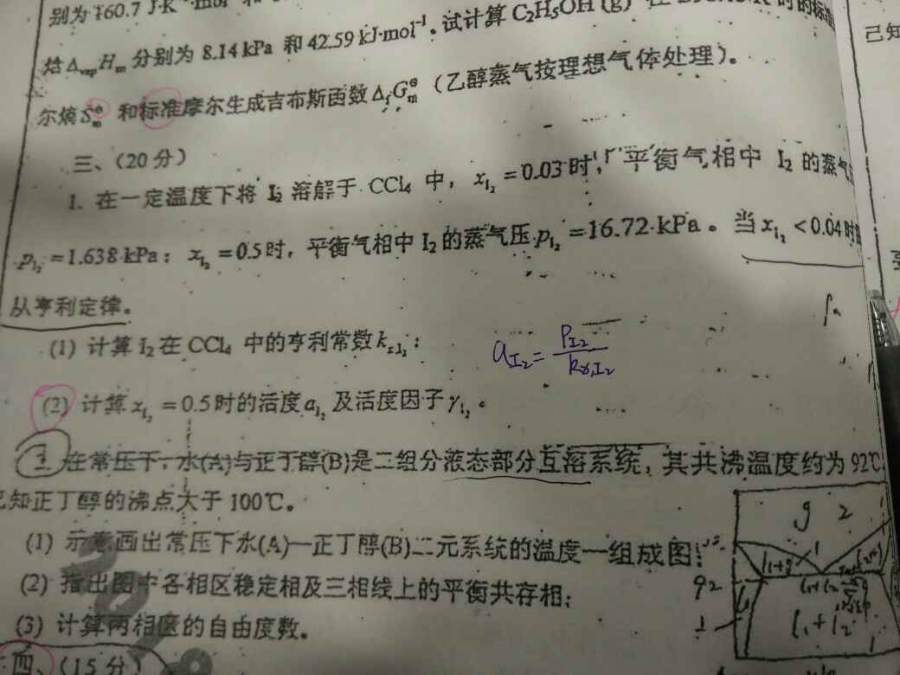 别为160.7 J·K⁻¹·mol
焓ΔvapHm 分别为 8.14 kPa 和 42.59 kJ·mol⁻¹。试计算 C₂H₅OH (g) 时的标
尔熵 S⊖m 和标准摩尔生成吉布斯函数 ΔfG⊖m (乙醇蒸气按理想气体处理)。
己知
三、(20分)
1. 在一定温度下将 I₂ 溶解于 CCl₄ 中, x_I₂ =0.03时, 平衡气相中 I₂ 的蒸气
p_I₂ =1.638 kPa; x_I₂ =0.5时, 平衡气相中 I₂ 的蒸气压 p_I₂ =16.72 kPa。当 x_I₂ <0.04时
从亨利定律。
(1) 计算 I₂ 在 CCl₄ 中的亨利常数 k_x,I₂;
a_I₂ = P_I₂ / k_x,I₂
(2) 计算 x_I₂ =0.5时的活度 a_I₂ 及活度因子 γ_I₂。
在常压下, 水(A)与正丁醇(B)是二组分液态部分互溶系统, 其共沸温度约为92℃
知正丁醇的沸点大于100℃。
g 2
(1) 示意画出常压下水(A)—正丁醇(B)二元系统的温度—组成图;
l₁+g
(2) 指出图中各相区稳定相及三相线上的平衡共存相;
92
l₁+l₂
(3) 计算两相区的自由度数。
四、(15分)